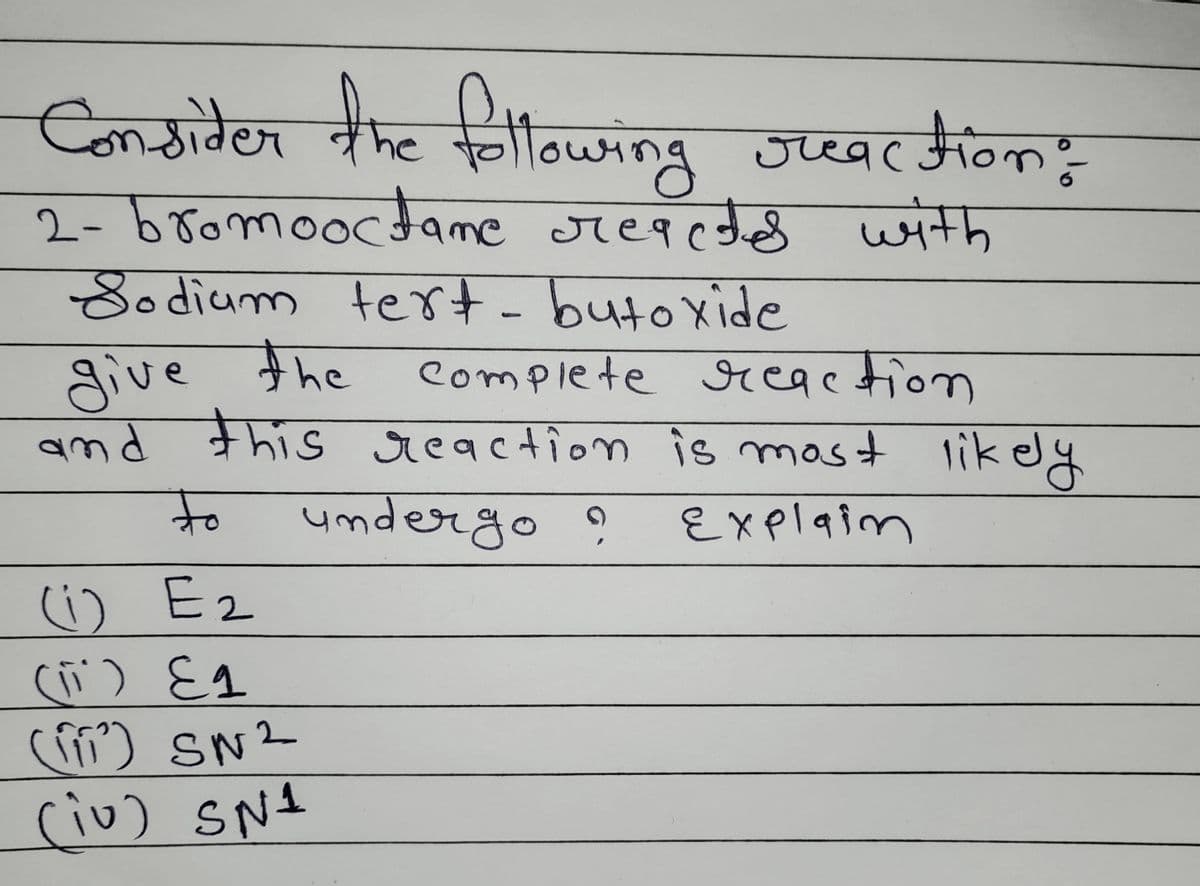 Consider the following reaction:-
2- bromooctane reacts with
Sodium tert - butoxide
give the complete reaction
and this reaction is most likely
to undergo ? Explain
(i) E2
(ii) E1
(iii) SN2
(iv) SN1